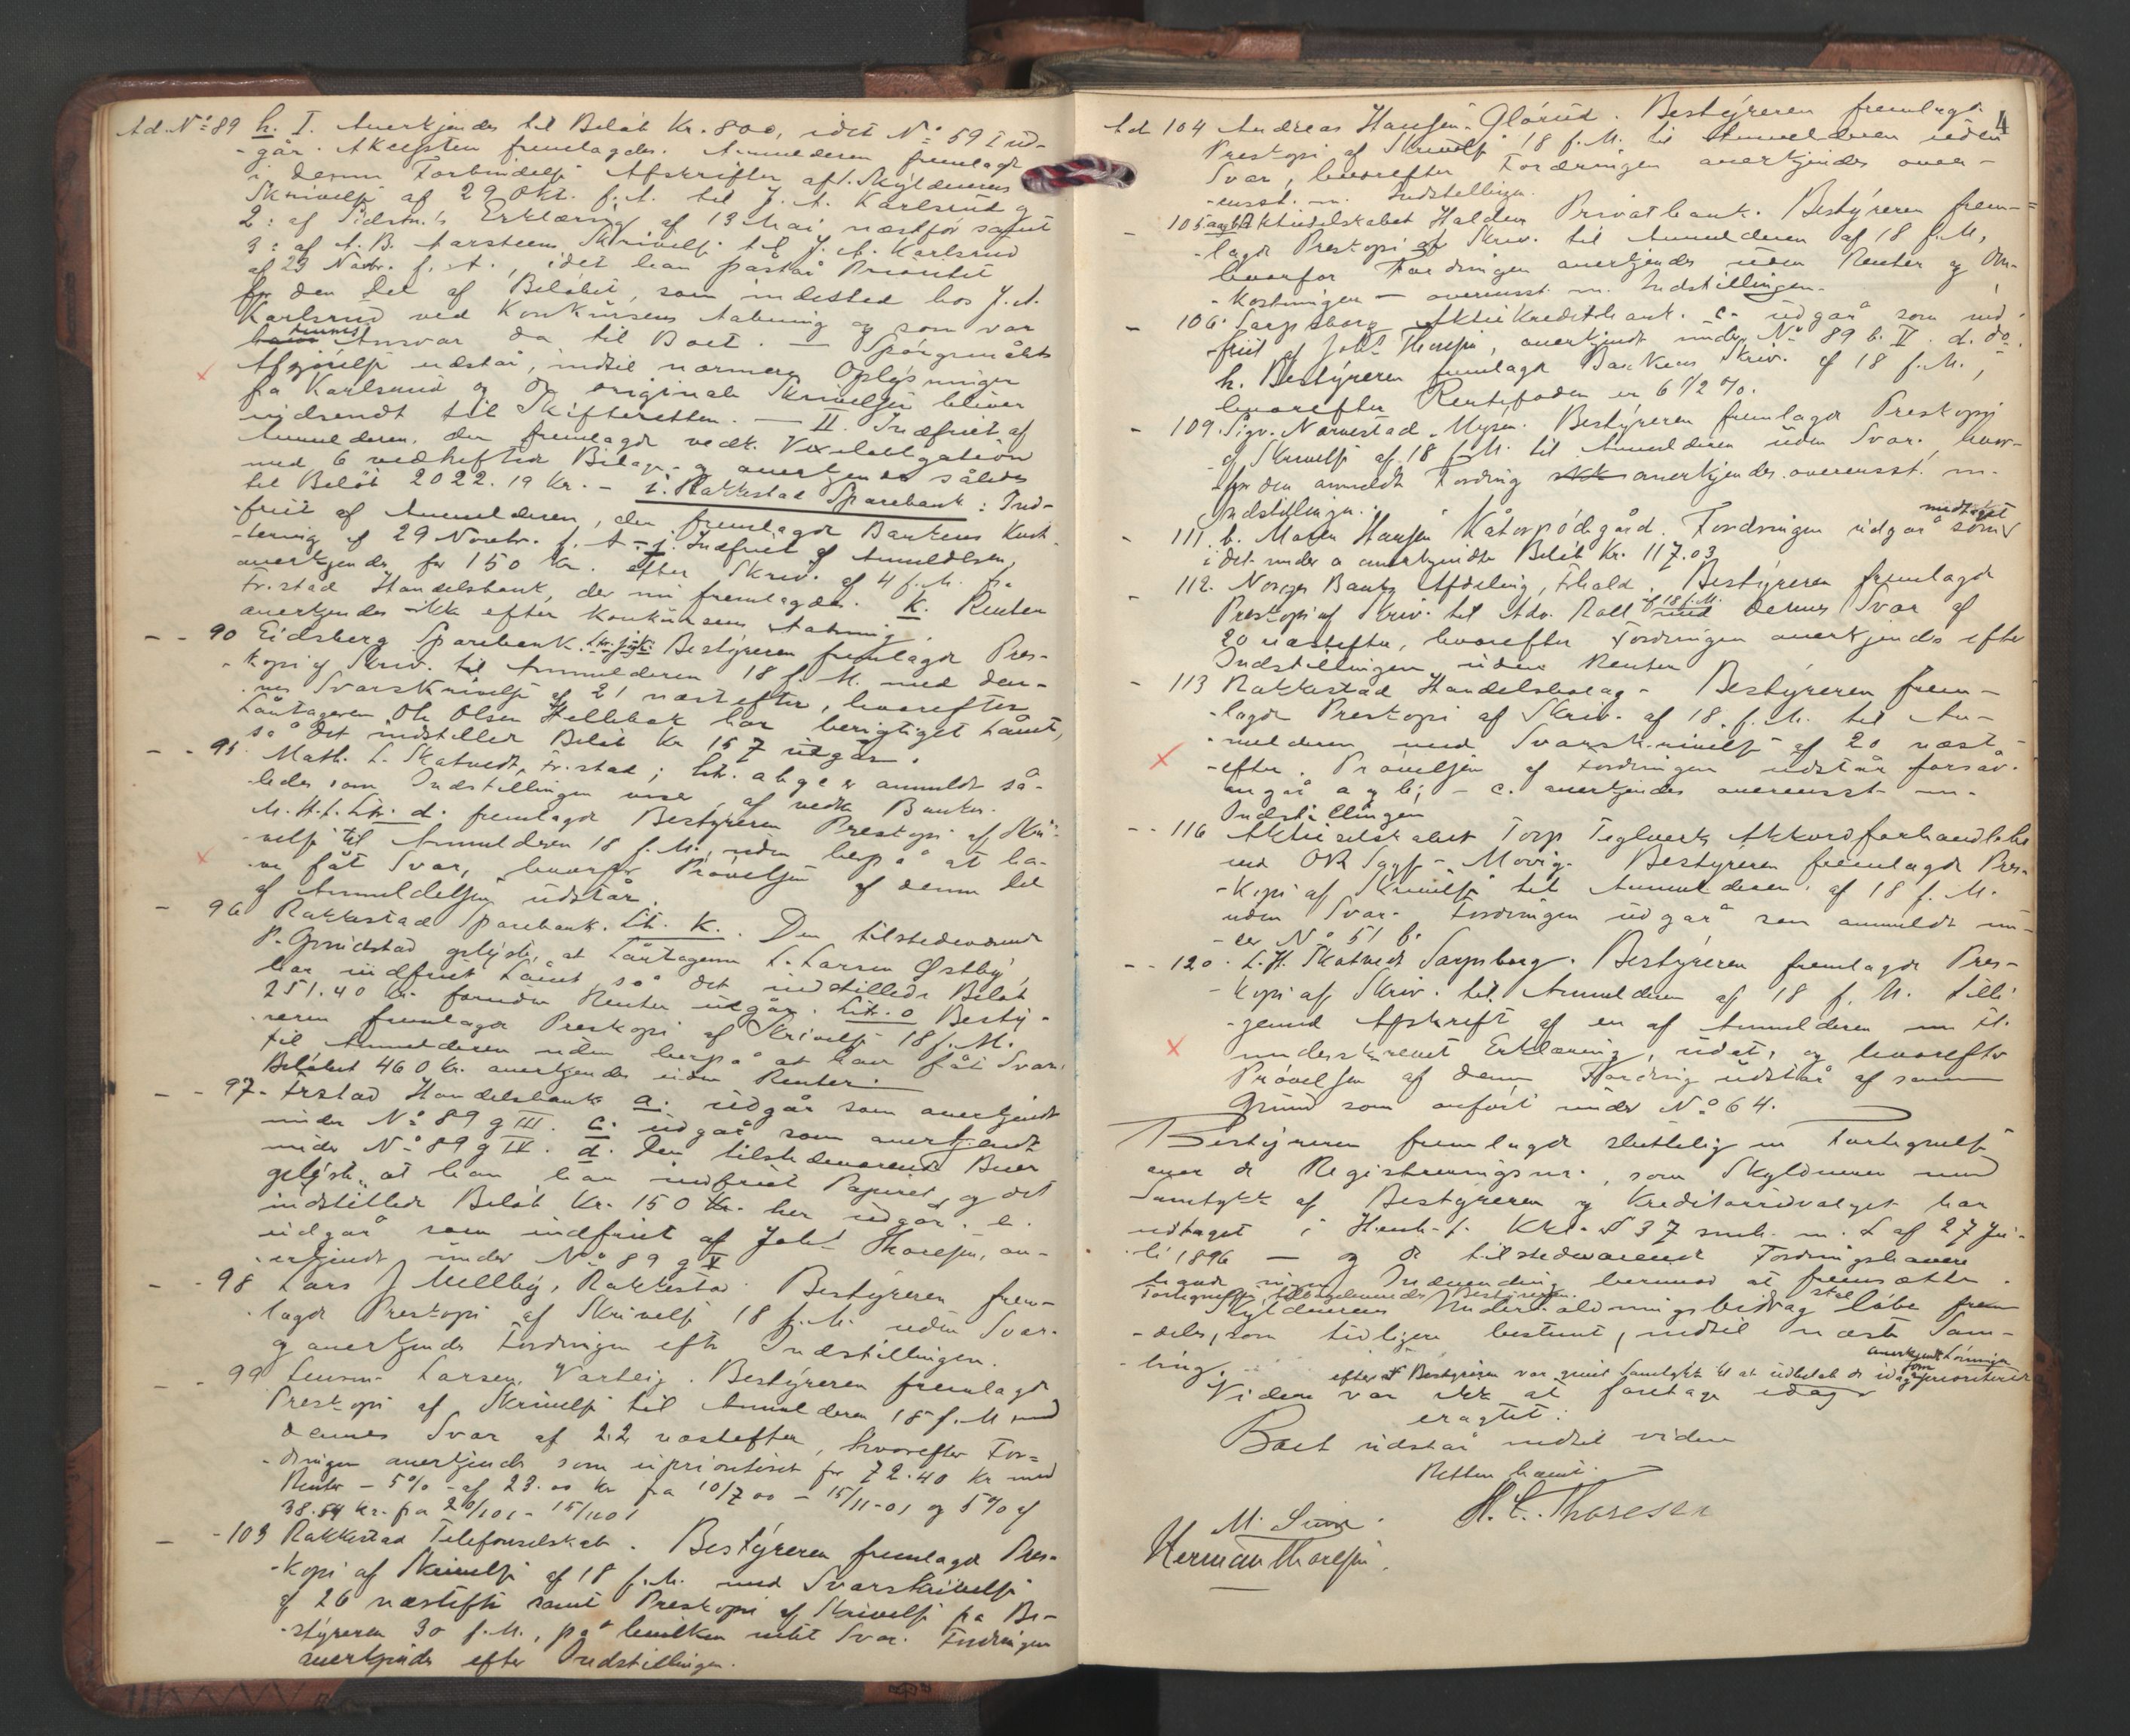 Ad. No 89 h. I. Anerkjendes til Beløb Kr. 800, idet No 59 I ud-
-går. Akcepten fremlagdes. Anmelderen fremlagde
i denne Forbindelse Afskrifter af 1. Skyldnerens
Skrivelse af 29 Okt. f. A. til J. A. Karlsrud og
2: af Sidstn.'s Erklæring af 13 Mai næstfør samt
3: af A. B. Aarsteens Skrivelse til J. A. Karlsrud
af 23 Novbr. f. A., idet han påstår Prioritet
for den Del af Beløbet, som indestod hos J. A.
Karlsrud ved Konkursens Aabning og som var
Ansvar da til Boet. — Spørgsmålets
Afgjørelse udstår, indtil nærmere Oplysninger
fra Karlsrud og de originale Skrivelser bliver
indsendt til Skifteretten. — II. Indfriet af
Anmelderen, der fremlagde vedk. Vexelobligation
med 6 vedheftede Bilage og anerkjendes således
til Beløb 2022.19 Kr. — i. Rakkestad Sparebank: Ind-
-friet af Anmelderen, der fremlagde Bankens Kvit-
-tering af 29 Novbr. f. A. — j. Indfriet af Anmelderen,
anerkjendes for 150 Kr. efter Skriv. af 4 f. M. fra
Fr.stad Handelsbank, der nu fremlagdes. k. Renter
anerkjendes ikke efter Konkursens Aabning.
— - 90 Eidsberg Sparebank. Bestyreren fremlagde Pres-
-kopi af Skriv. til Anmelderen 18 f. M. med den-
-nes Svarskrivelse af 21 næstefter, hvorefter
Låntageren Ole Olsen Hellebæk har berigtiget Lånet,
så det indstillede Beløb Kr 157 udgår.
— - 95. Math. L. Skatvedt, Fr.stad; Litr. a b g c er anmeldt så-
-ledes som Indstillingen viser af vedk. Banker.
M. H. t. Litr. d. fremlagde Bestyreren Preskopi af Skri-
-velse til Anmelderen 18 f. M., uden herpå at ha-
-ve fåt Svar, hvorfor Prøvelsen af denne Del
af Anmeldelsen udstår.
— 96 Rakkestad Sparebank. Lit. K. Den tilstedeværende
P. Grindstad oplyste, at Låntageren L. Larsen Østby,
har indfriet Lånet, så det indstillede Beløb
251.40 Kr. foruden Renter udgår. Litr. o Besty-
-reren fremlagde Preskopi af Skrivelse 18 f. M.
til Anmelderen uden herpå at have fåt Svar.
Beløbet 460 Kr. anerkjendes uden Renter.
— - 97. Frstad Handelsbank a. udgår som anerkjendt
under No 89 g III. c. udgår som anerkjendt
under No 89 g IV. d. Den tilstedeværende Buer
oplyste, at han har indfriet Papiret, og det
indstillede Beløb Kr. 150 Kr. her udgår. e.
udgår som indfriet af Johs Thoresen, an-
-erkjendt under No 89 g V
— - 98 Lars J Mellby, Rakkestad. Bestyreren frem-
-lagde Preskopi af Skrivelse 18 f. M. uden Svar.
og anerkjendes Fordringen efter Indstillingen.
— - 99 Larsen, Varteig. Bestyreren fremlagde
Preskopi af Skrivelse til Anmelderen 18 f. M med
dennes Svar af 22 næstefter, hvorefter For-
-dringen anerkjendes som uprioriteret for 72.40 Kr med
Renter — 5% af 23.00 Kr fra 10/7 00 – 15/11-01 og 5% af
38.54 Kr. fra 20/10 01 - 15/11 01
— - 103 Rakkestad Telefonselskab. Bestyreren fremlagde Pres-
-kopi af Skrivelse af 18 f. M. med Svarskrivelse
af 26 næstefter samt Preskopi af Skrivelse fra Be-
-styreren 30 f. M., på hvilken intet Svar. Fordringen
anerkjendes efter Indstillingen.
4
Ad 104 Andreas Hansen-Glorud. Bestyreren fremlagde
Preskopi af Skrivelse 18 f. M. til Anmelderen uden
Svar, hvorefter Fordringen anerkjendes over-
-ensst. m. Indstillingen.
— 105 a og b Aktieselskabet Haldens Privatbank. Bestyreren frem-
-lagde Preskopi af Skriv. til Anmelderen af 18 f. M.,
hvorfor Fordringen anerkjendes uden Renter og Om-
-kostninger — overensst. m. Indstillingen.
— 106. Sarpsborg Aktiekreditbank. c. udgår som ind-
-friet af Johs Thoresen, anerkjendt under No 89 b. II. d. do.
h. Bestyreren fremlagde Bankens Skriv. af 18 f. M.,
hvorefter Rentefoden er 6 1/2 %.
— 109. Sigv. Narvestad, Mysen. Bestyreren fremlagde Preskopi
af Skrivelse af 18 f. M. til Anmelderen uden Svar, hvor-
-for den anmeldte Fordring anerkjendes overensst. m.
Indstillingen.
— 111. b. Maren Hansen Kåtorpødegård. Fordringen udgår som medtaget
i det under a anerkjendte Beløb Kr. 117.03.
— 112. Norges Banks Afdeling, Fhald. Bestyreren fremlagde
Preskopi af Skriv. til Adv. Roll af 18 f. M. med dennes Svar af
20 næstefter, hvorefter Fordringen anerkjendes efter
Indstillingen uden Renter
— 113 Rakkestad Handelsbolag. Bestyreren frem-
-lagde Preskopi af Skriv. af 18. f. M. til An-
-melderen med Svarskrivelse af 20 næst-
-efter. Prøvelsen af Fordringen udstår forsåv.
angår a og b; — c. anerkjendes overensst. m.
Indstillingen
-- 116 Aktieselskabet Torp Teglverk Akkordforhandlebo
ved OR Movig. Bestyreren fremlagde Pres-
-kopi af Skrivelse til Anmelderen af 18 f. M.
uden Svar. Fordringen udgår som anmeldt un-
-der No 51 b.
-- 120. L. H. Skatvedt Sarpsborg. Bestyreren fremlagde Pres-
-kopi af Skriv. til Anmelderen af 18 f. M. tilli-
-gemed Afskrift af en af Anmelderen
underskrevet Erklæring, udat., og hvorefter
Prøvelsen af denne Fordring udstår af samme
Grund som anført under No 64.
Bestyreren fremlagde sluttelig en Fortegnelse
over de Registreringsnr., som Skyldneren med
Samtykke af Bestyreren og Kreditorudvalget har
udtaget i Henh. t. Kkl. § 37 smh. m. L af 27 Ju-
-li 1896 — og de tilstedeværende Fordringshavere
havde ingen Indvending hermod at fremsætte.
Fortegnelsen tilbageleveredes Bestyreren.
Skyldnerens Underholdningsbidrag skal løbe frem-
-deles, som tidligere bestemt, indtil næste Sam-
-ling.
efterat Bestyreren var givet Samtykke til at udbetale de idag som prioriterede anerkjendte Lønninger
Videre var ikke at foretage idag
eragtet:
Boet udstår indtil videre
Retten hævet.
M. Lund. H. C. Thoresen
Herman Thoresen.